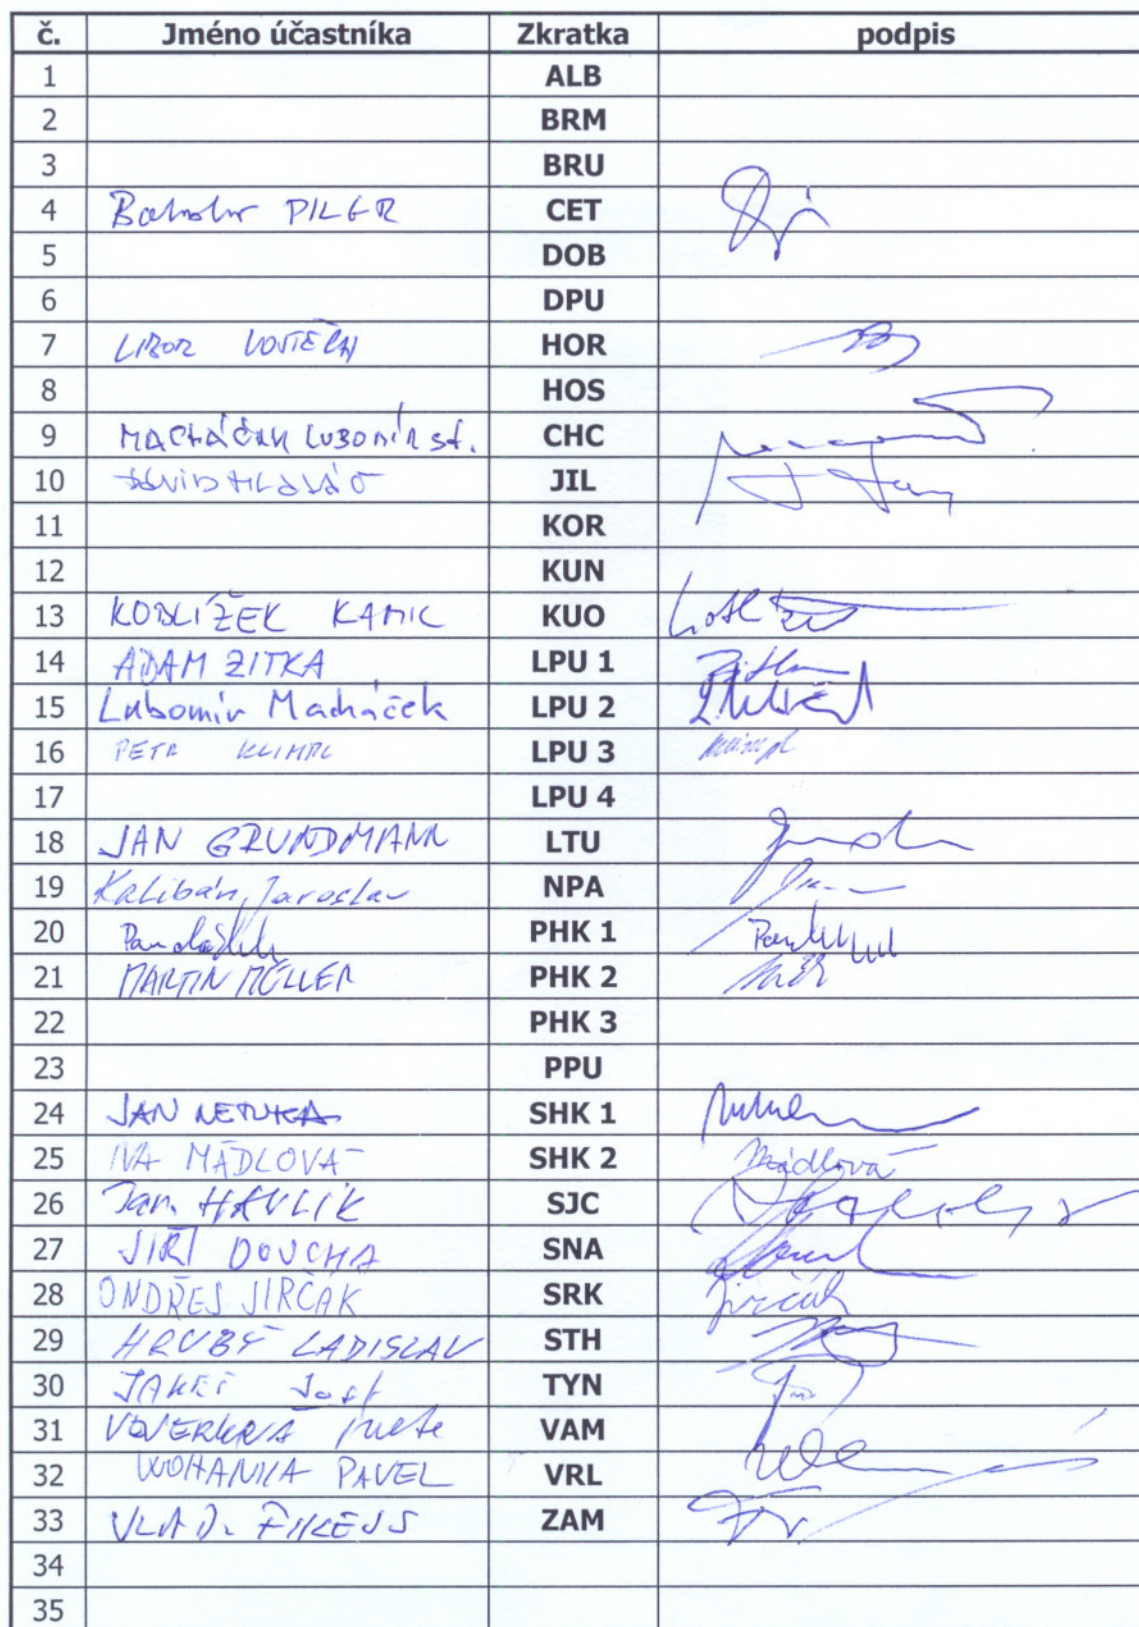 č. Jméno účastníka Zkratka podpis
1 ALB
2 BRM
3 BRU
4 PILGR CET
5 DOB
6 DPU
7 LIBOR VOJTĚCH HOR
8 HOS
9 MACHÁČEK LUBOMÍR st. CHC
10 DAVID HLAVÁČ JIL
11 KOR
12 KUN
13 KOBLÍŽEK KAMIL KUO
14 ADAM ZITKA LPU 1
15 Lubomír Macháček LPU 2
16 PETR KLIMPL LPU 3
17 LPU 4
18 JAN GRUNDMANN LTU
19 Kalibán, Jaroslav NPA
20 PHK 1
21 MARTIN MÜLLER PHK 2
22 PHK 3
23 PPU
24 JAN NETUKA SHK 1
25 IVA MÁDLOVÁ SHK 2 Mádlová
26 Jan. HAVLÍK SJC
27 JIŘÍ DOUCHA SNA
28 ONDŘEJ JIRČÁK SRK Jirčák
29 HRUBÝ LADISLAV STH
30 Josef TYN
31 VAM
32 WOHANKA PAVEL VRL
33 VLAD. ZAM
34
35